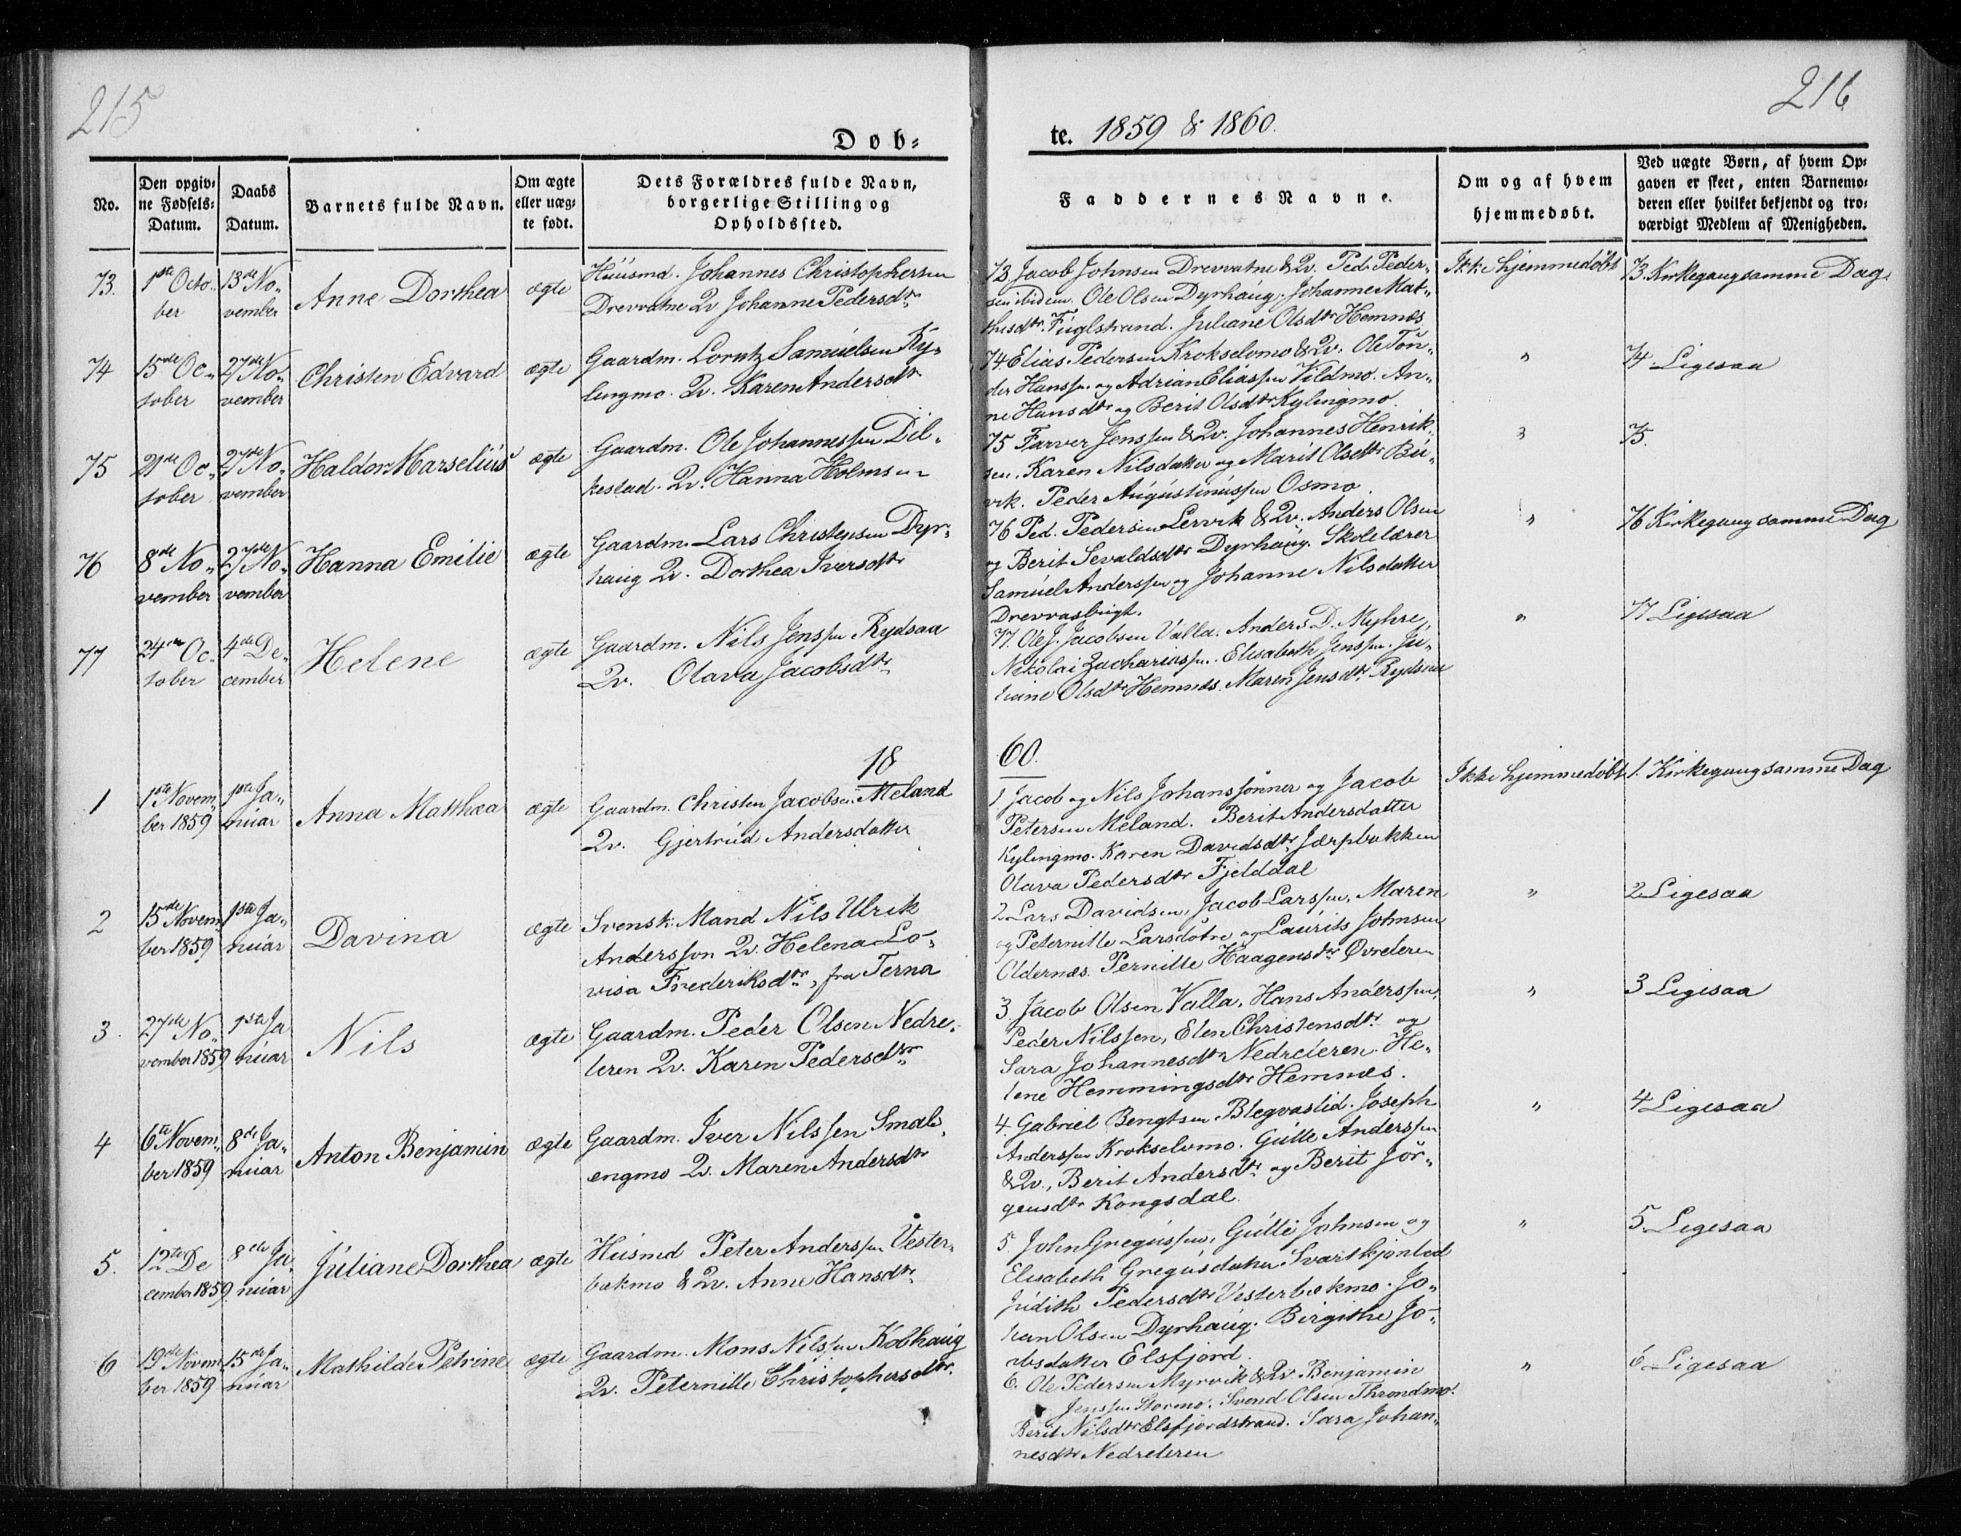 215
216
Døb-
te. 1859 & 1860.
No.
Den opgiv-
ne Fødsels-
Datum.
Daabs
Datum.
Barnets fulde Navn.
Om ægte
eller uæg-
te født.
Dets Forældres fulde Navn,
borgerlige Stilling og
Opholdssted.
Faddernes Navne.
Om og af hvem
hjemmedøbt.
Ved uægte Børn, af hvem Op-
gaven er skeet, enten Barnemo-
deren eller hvilket bekjendt og tro-
værdigt Medlem af Menigheden.
73.
1ste Octo-
ber
13de No-
vember
Anne Dorthea
ægte
Huusmd. Johannes Christophersen
Drevvatne Qv Johanne Pedersdtr
73 Jacob Johnsen Drevvatne & Qv. Ped. Peder-
sen ibidem. Ole Olsen Dyrhaug. Johanne Mat-
thisdtr. Fuglstrand. Juliane Olsdtr Hemnæs
Ikke hjemmedøbt
73. Kirkegang samme Dag
74
15de Oc-
tober
27de No-
vember
Christen Edvard
ægte
Gaardm. Lorntz Samuelsen Ky-
lingmo. Qv. Karen Andersdtr
74 Elias Pedersen Krokselvmo & Qv. Ole Tøn-
der Hanssen og Adrian Eliassen Vildmo. An-
ne Hansdtr og Berit Olsdtr Kylingmo.
"
74 Ligesaa
75
21de Oc-
tober
27de No-
vember
Haldor Marselius
ægte
Gaardm. Ole Johannessen Dil-
kestad. Qv. Hanna Holmsen
75 Farver Jenssen & Qv. Johannes Henrik-
sen. Karen Nilsdatter og Marit Olsdtr Bu-
vik. Peder Augustinussen Osmo.
"
75.
76
8de No-
vember
27de No-
vember
Hanna Emilie
ægte
Gaardm. Lars Christensen Dyr-
haug Qv. Dorthea Iversdtr
76 Ped. Pedersen Lervik & Qv. Anders Olsen
og Berit Sevaldsdtr Dyrhaug. Skolelærer
Samuel Anderssen og Johanne Nilsdatter
Drevvasbugt.
"
76 Kirkegang samme Dag
77
24de Oc-
tober
4de De-
cember
Helene
ægte
Gaardm. Nils Jenssen Rydsaa
Qv. Olava Jacobsdtr
77. Ole J. Jacobsen Valla. Anders D. Myhre,
Nikolai Zachariassen. Elisabeth Jenssen. Ju-
liane Olsdtr Hemnæs. Maren Jensdtr Rydsaa
"
77 Ligesaa
18
60.
1
1ste Novem-
ber 1859
1ste Ja-
nuar
Anna Matthea
ægte
Gaardm. Christen Jacobsen Meland
Qv. Gjertrud Andersdatter
1 Jacob og Nils Johanssønner og Jacob
Petersen Meland. Berit Andersdatter
Kylingmo. Karen Davidsdtr Jærpbakken
Olava Pedersdtr Fjelddal
Ikke hjemmedøbt
1. Kirkegang samme Dag
2
15de Novem-
ber 1859
1ste Ja-
nuar
Davina
ægte
Svensk Mand Nils Ulrik
Andersson Qv. Helena Lo-
visa Frederiksdtr, fra Terna
2 Lars Davidsen, Jacob Larssen, Maren
og Peternille Larsdøtre og Laurits Johnsen
Oldernæs. Pernille Haagensdtr Øvreleren
"
2 Ligesaa
3.
27de No-
vember 1859
1ste Ja
nuar
Nils
ægte
Gaardm. Peder Olsen Nedre-
leren Qv. Karen Pedersdtr
3. Jacob Olsen Valla, Hans Anderssen,
Peder Nilssen, Elen Christensdtr og
Sara Johannesdtr Nedreleren. He-
lene Hemmingsdtr Hemnæs.
"
3 Ligesaa
4
6te Novem-
ber 1859
8de Ja-
nuar
Anton Benjamin
ægte
Gaardm. Iver Nilssen Smale-
engmo Qv. Maren Andersdtr
4. Gabriel Bengtsen Blegvaslid. Joseph
Anderssen Krokselvmo. Gutte Anderssen
& Qv., Berit Andersdtr og Berit Jør-
gensdtr Kongsdal.
"
4 Ligesaa
5.
12te De
cember 1859
8de Ja-
nuar
Juliane Dorthea
ægte
Husmd Peter Anderssen Vester-
bækmo & Qv. Anne Hansdtr
5. John Gregussen, Gutte Johnsen og
Elisabeth Gregusdatter Svartkjønlid
Judith Pedersdtr Vesterbækmo. Jo-
han Olsen Dyrhaug. Birgithe Ja-
cobsdatter Elsfjord.
"
5. Ligesaa
6
19de Novem
ber 1859
15de Ja-
nuar
Mathilde Petrine
ægte
Gaardm. Mons Nilssen Kobhaug
Qv. Peternille Christophersdtr.
6. Ole Pedersen Myrvik & Qv. Benjamin
Jenssen Stormo. Svend Olsen Throndmo.
Berit Nilsdtr Elsfjordstrand. Sara Johan-
nesdtr Nedreleren
"
6 Ligesaa